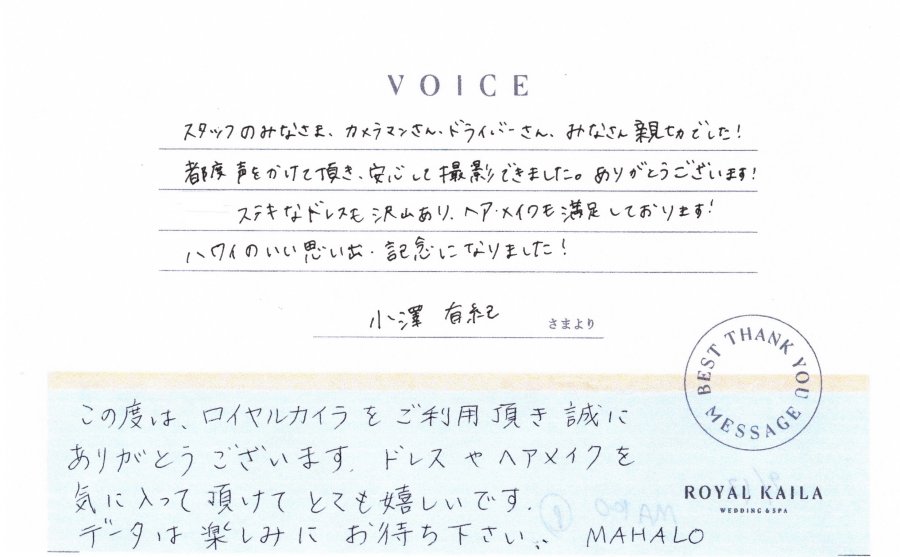 VOICE
スタッフのみなさま、カメラマンさん、ドライバーさん、みなさん親切でした!
都度声をかけて頂き、安心して撮影できました。ありがとうございます!
ステキなドレスも沢山あり、ヘア・メイクも満足しております!
ハワイのいい思い出・記念になりました!
小澤 有紀 さまより
BEST THANK YOU MESSAGE
この度は、ロイヤルカイラをご利用頂き誠に
ありがとうございます. ドレスやヘアメイクを
気に入って頂けてとても嬉しいです.
データは楽しみにお待ち下さい.. MAHALO
ROYAL KAILA
WEDDING & SPA